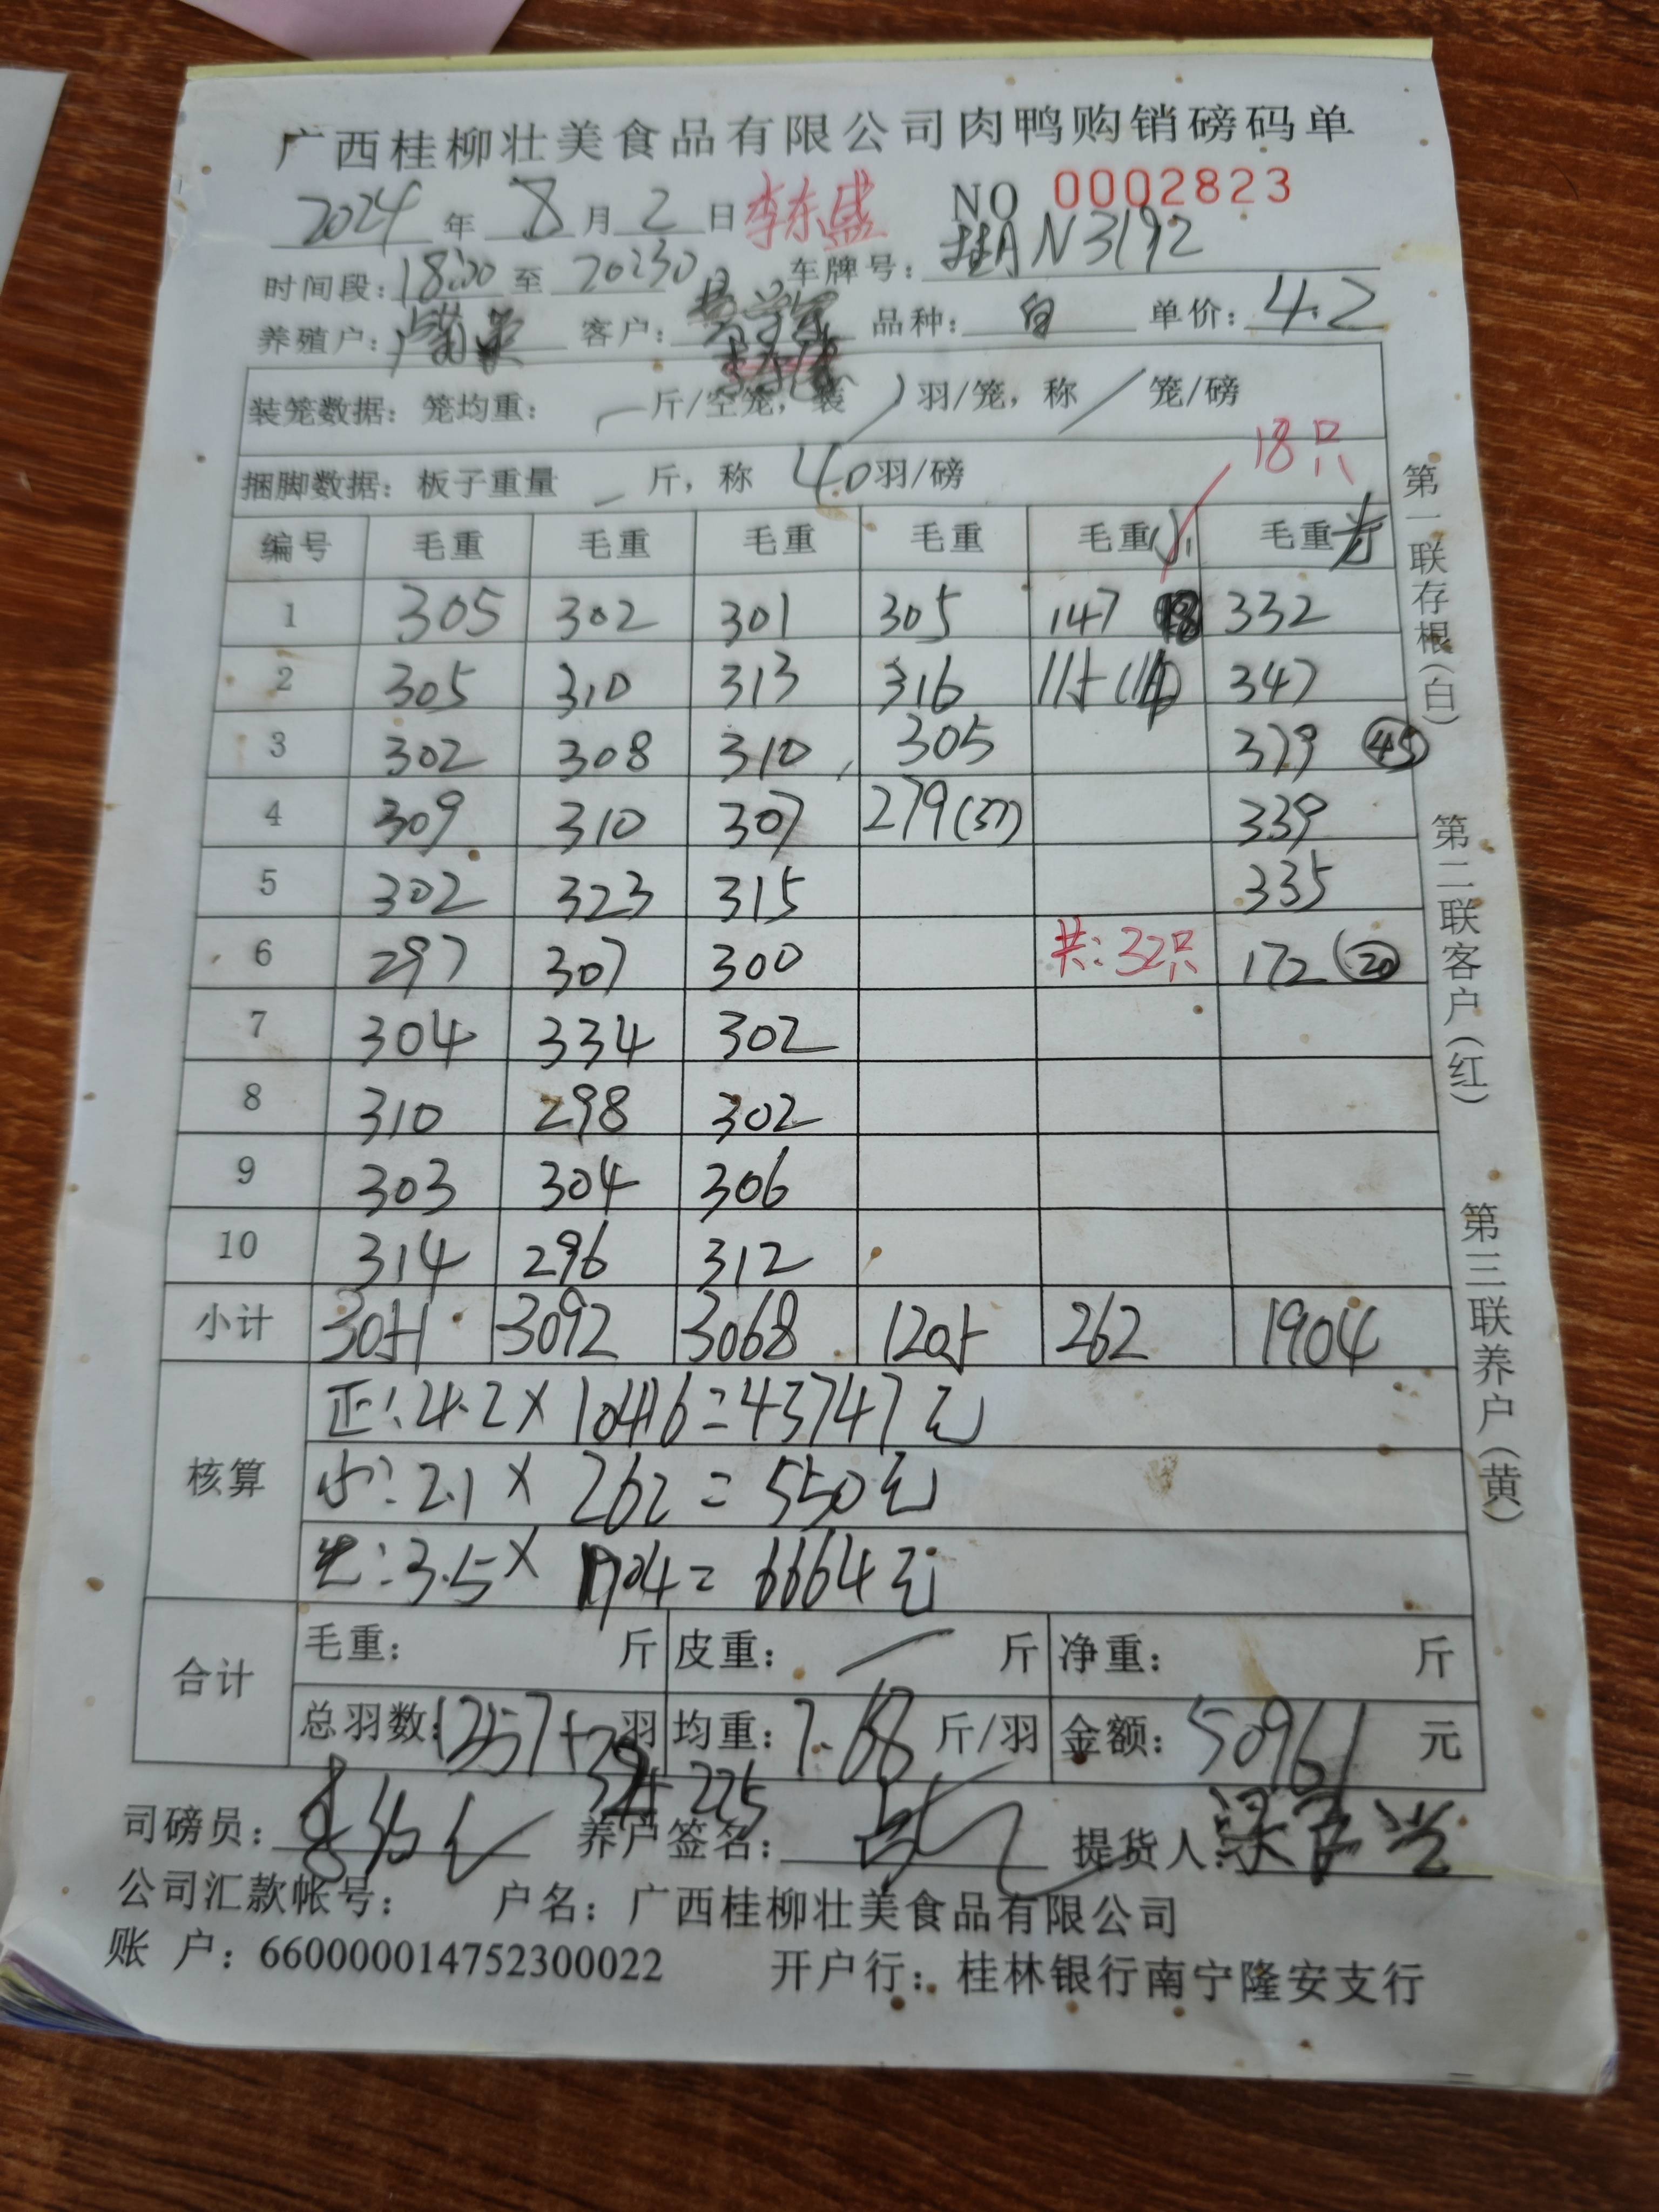 广西桂柳壮美食品有限公司肉鸭购销磅码单
2024 年 8 月 2 日 李东盛 NO 0002823
时间段: 18:00 至 20:30 车牌号: 桂AN3192
养殖户: 客户: 品种: 白 单价: 4.2
装笼数据: 笼均重: 斤/空笼, 装 羽/笼, 称 笼/磅
18只
捆脚数据: 板子重量 斤, 称 40羽/磅
编号 毛重 毛重 毛重 毛重 毛重小 毛重
1 305 302 301 305 147 332
2 305 310 313 316 115 (14) 347
3 302 308 310 305 379 45
4 309 310 307 279(37) 339
5 302 323 315 335
6 297 307 300 共:32只 172 (20)
7 304 334 302
8 310 298 302
9 303 304 306
10 314 296 312
小计 3051 3092 3068 1205 262 1904
核算
正:4.2×10416=43747元
小:2.1×262=550元
3.5×1904=6664元
合计
毛重: 斤 皮重: 斤 净重: 斤
总羽数:1357+ 羽 均重:7.68 斤/羽 金额:50961 元
225
司磅员: 养户签名: 提货人:
公司汇款帐号: 户名:广西桂柳壮美食品有限公司
账 户:660000014752300022 开户行:桂林银行南宁隆安支行
第一联存根(白)
第二联客户(红)
第三联养户(黄)